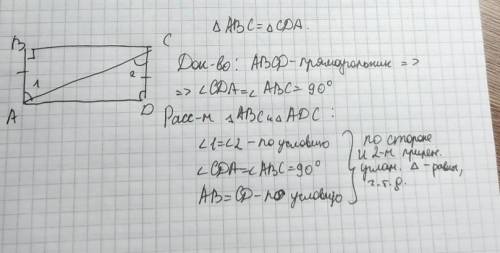 △ABC = △CDA.
B
C
1
2
A
D
Док-во: ABCD - прямоугольник =>
=> ∠CDA = ∠ABC = 90°
Расс-м △ABC и △ADC :
∠1 = ∠2 - по условию
∠CDA = ∠ABC = 90°
AB = CD - по условию
по стороне
и 2-м прилеж.
углам. △ - равн,
ч.т.д.